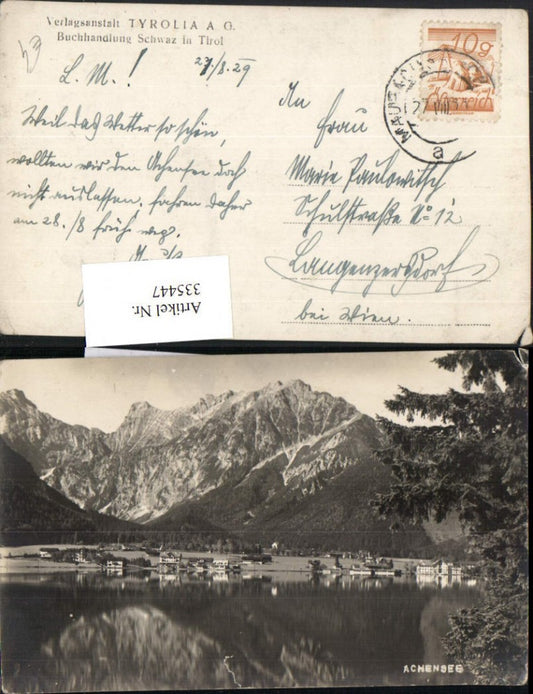 Verlagsanstalt TYROLIA A G.
Buchhandlung Schwaz in Tirol
L. M. !
27/8. 29
Weil das Wetter so schön,
wollten wir den Achensee doch
nicht auslassen, fahren daher
am 28./8 früh weg.
An
Frau
Marie Paulowitsch
Schulstraße No 12
Langenzersdorf
bei Wien.
10g
a
Artikel Nr.
335447
ACHENSEE